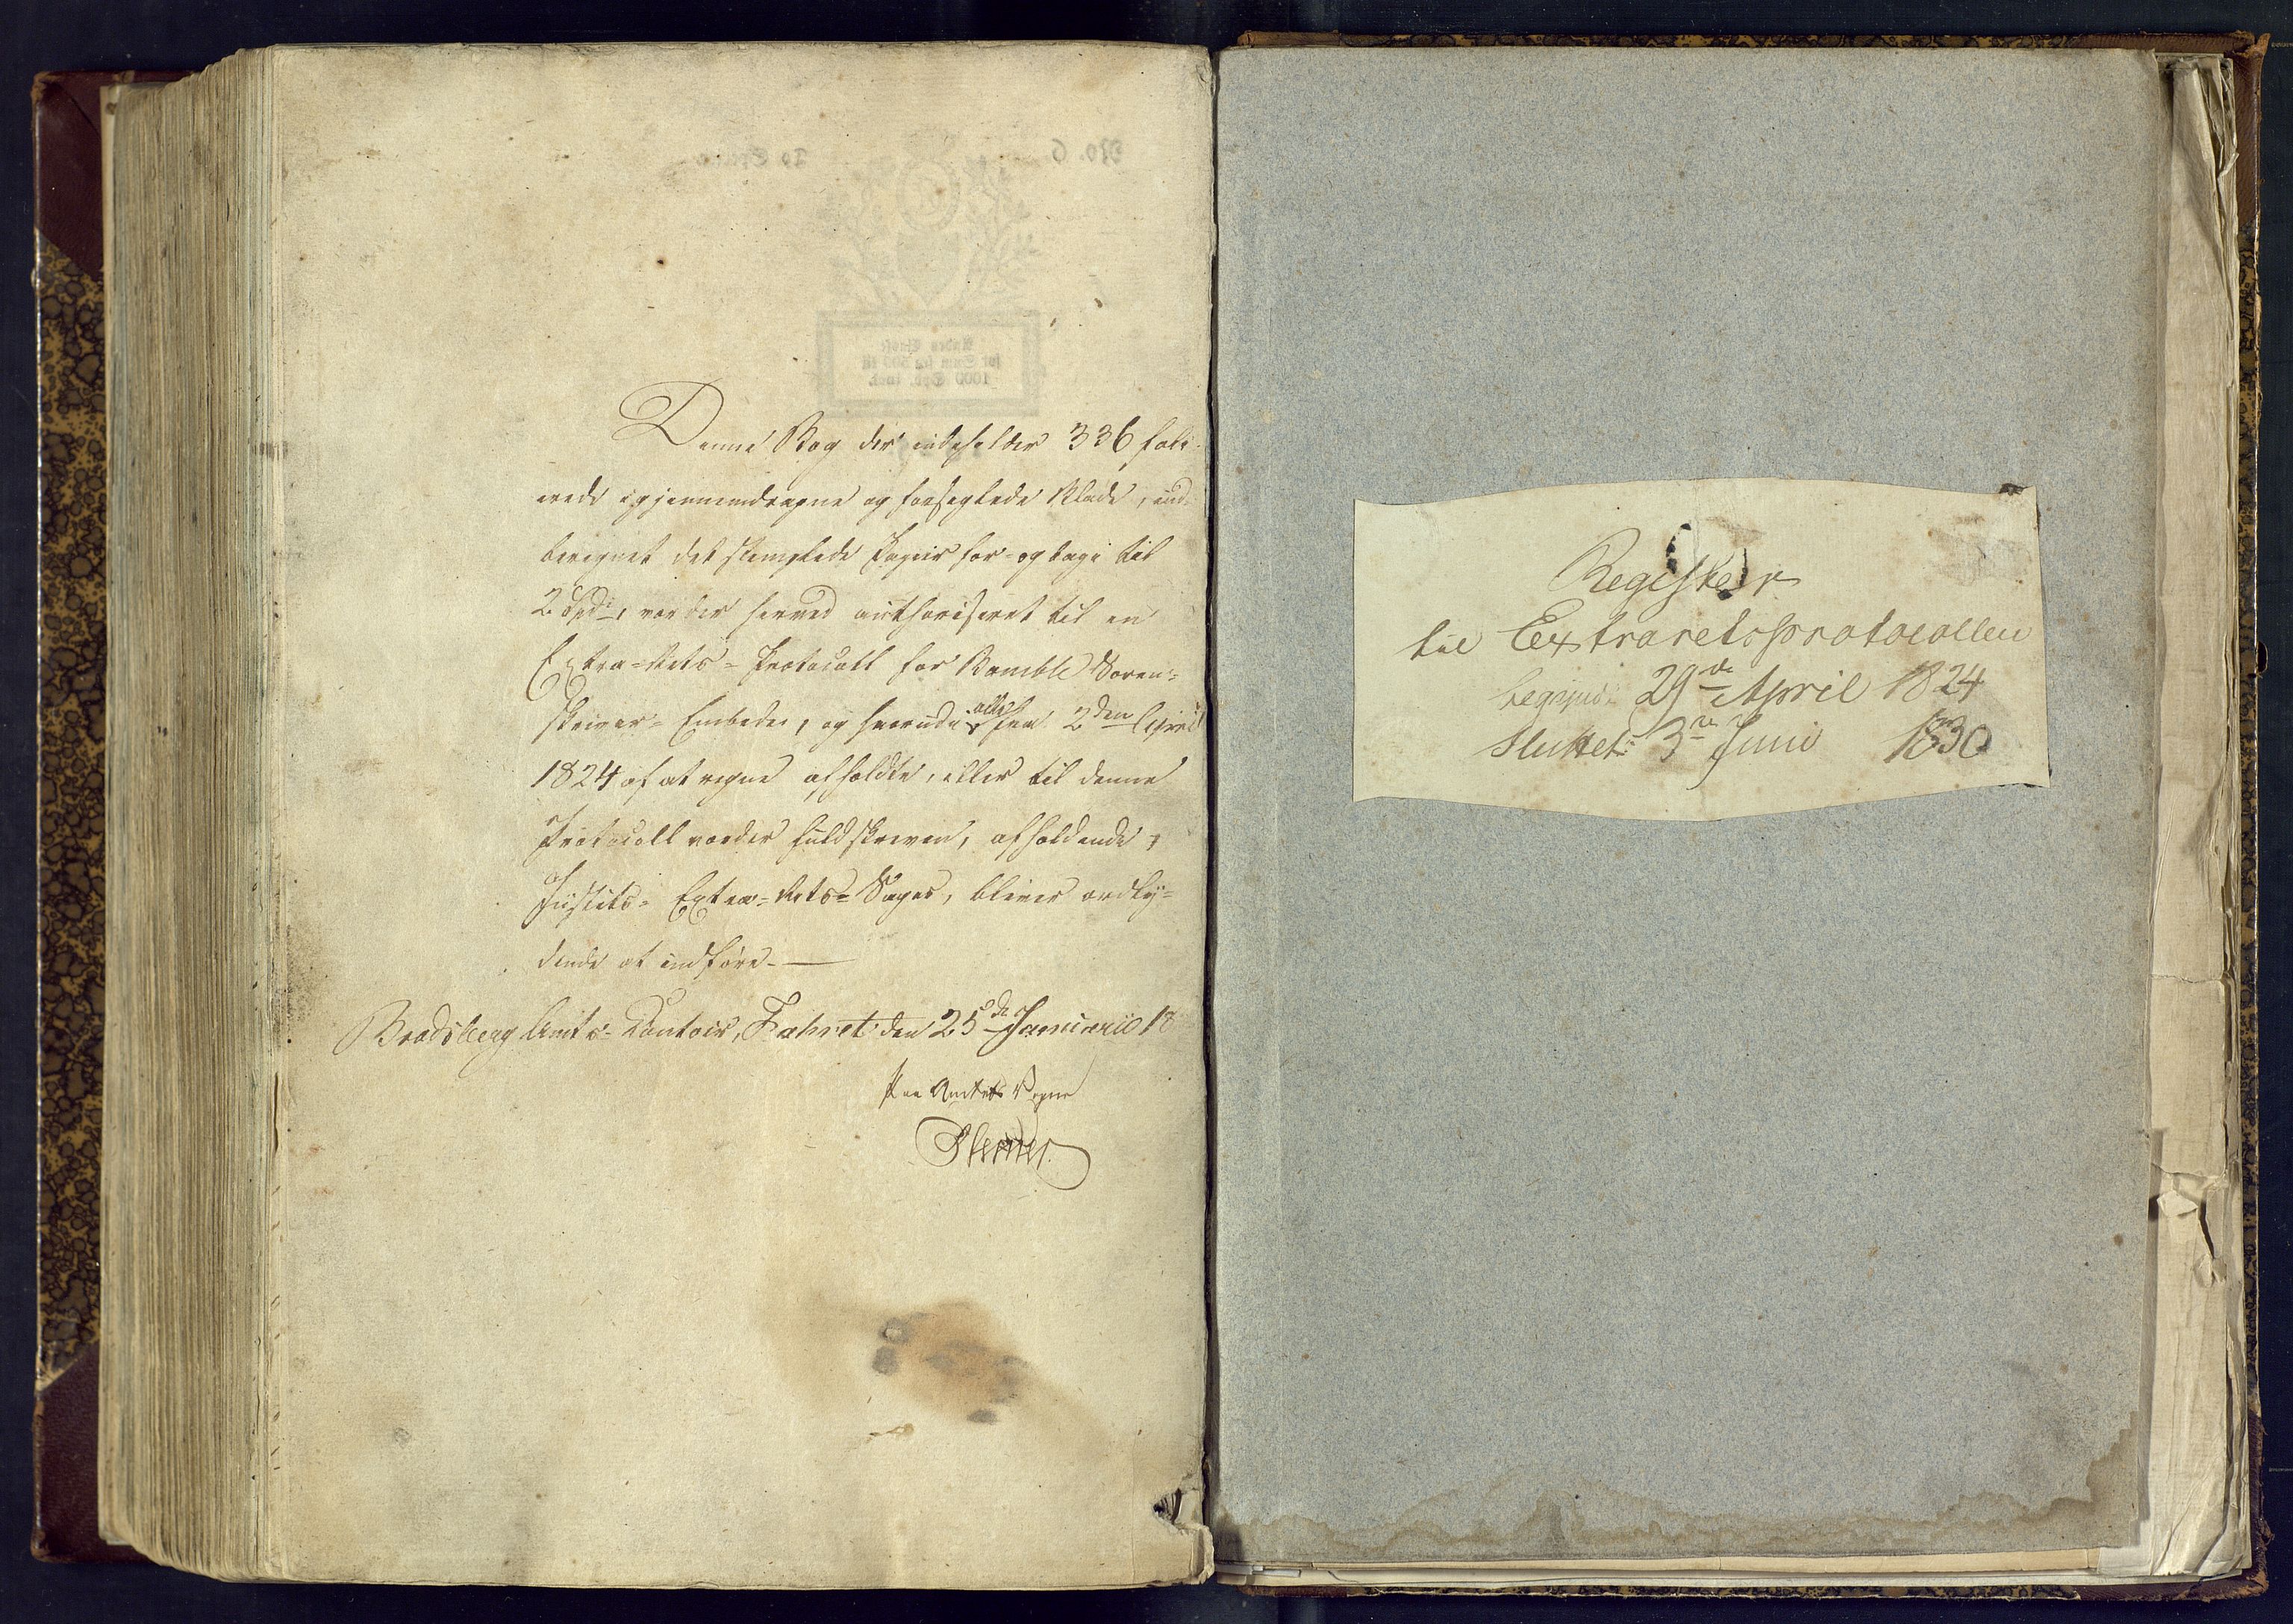 Denne Bog der indeholder 336 foli-
erede igjennemdragne og forseglede Blade, ind-
beregnet det stemplede Papiir for- og bage til
2 Spd:, vorder herved authoriseret til en
Extra-Rets-Protocoll for Bamble Soren-
skriver-Embede, og hvorudi alle fra 2den April
1824 af at regne afholdte, eller til denne
Protocoll vorder fuldskreven, afholdende
Justits- Extra-Rets-Sager, bliver ordly-
dende at indføre.
Bradsberg Amts-Contoir, Fahret den 25de Januario 18
Paa Amtets Vegne
Register
til Extraretsprotocollen
begynd: 29de April 1824
Sluttet: 3de Juni 1830